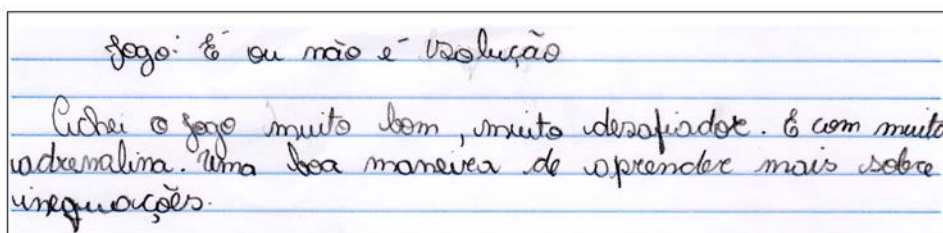 Jogo: É ou não é solução
Achei o jogo muito bom, muito desafiador. É com muito
adrenalina. Uma boa maneira de aprender mais sobre
inequações.